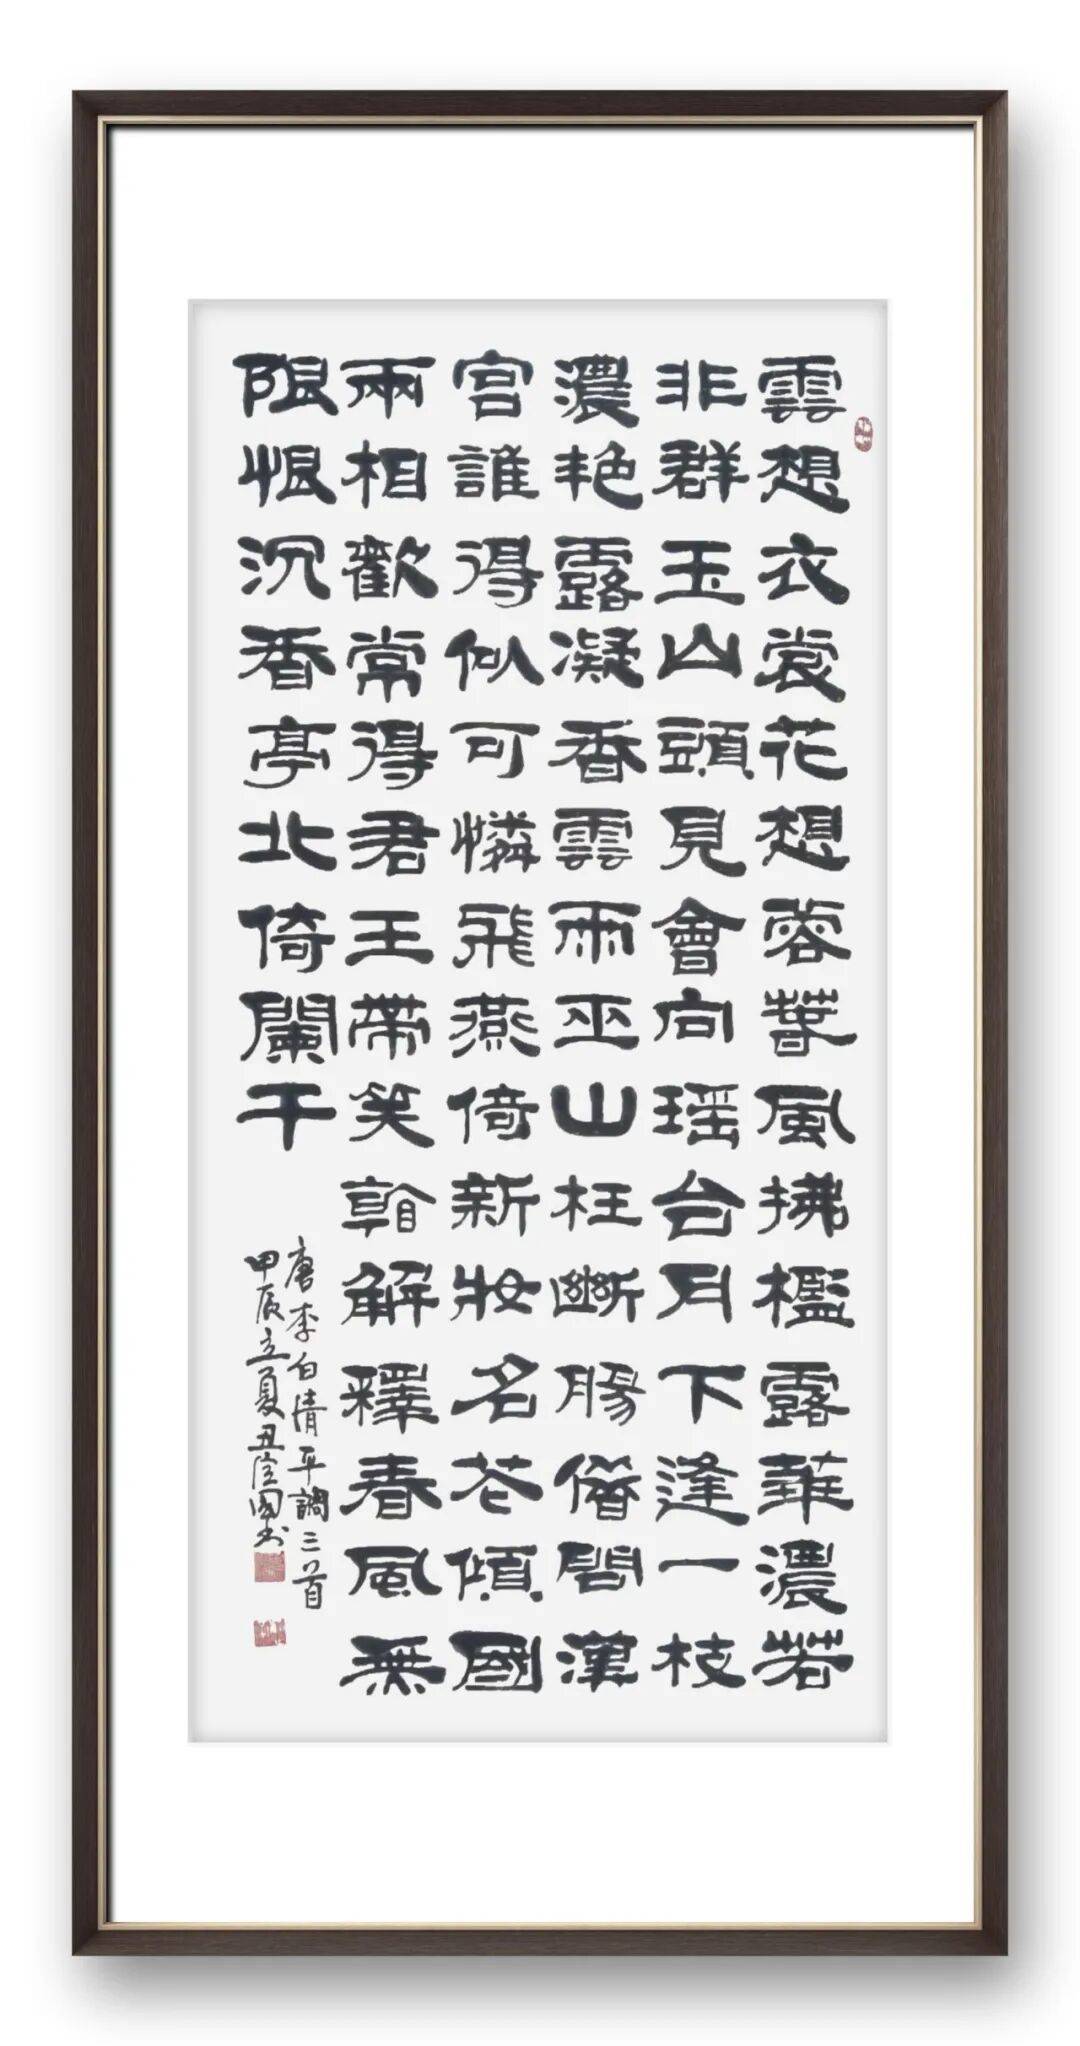 雲想衣裳花想蓉春風拂檻露華濃若
非群玉山頭見會向瑶台月下逢一枝
濃艳露凝香雲雨巫山枉斷腸借問漢
宮誰得似可憐飛燕倚新妝名花傾國
兩相歡常得君王帶笑看解釋春風無
限恨沉香亭北倚闌干
唐李白清平調三首
甲辰立夏国书